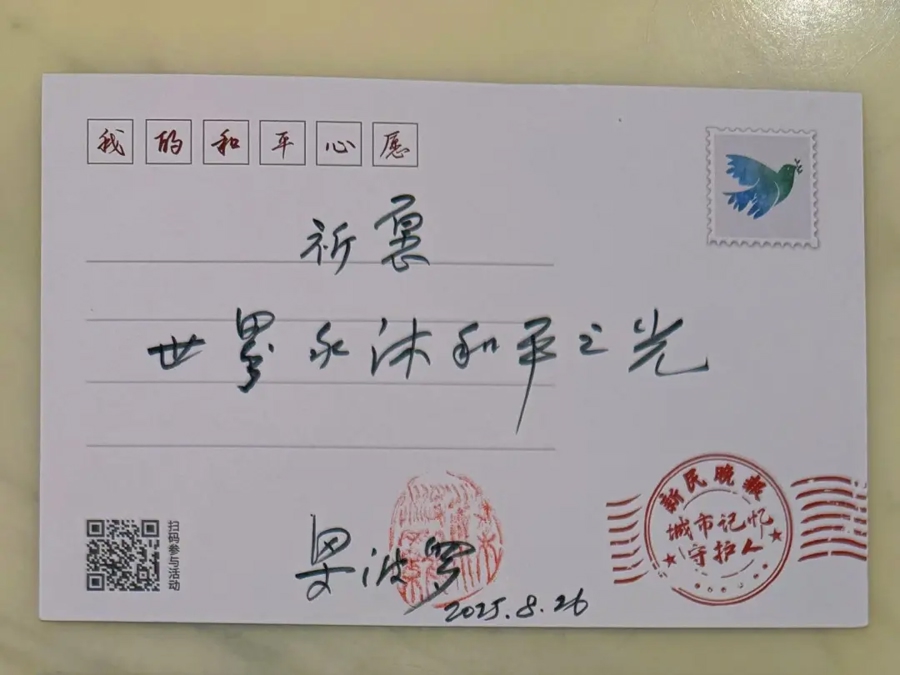 我的和平心愿
祈愿
世界永沐和平之光
梁波罗
2025.8.26
扫码参与活动
新民晚报
城市记忆
守护人